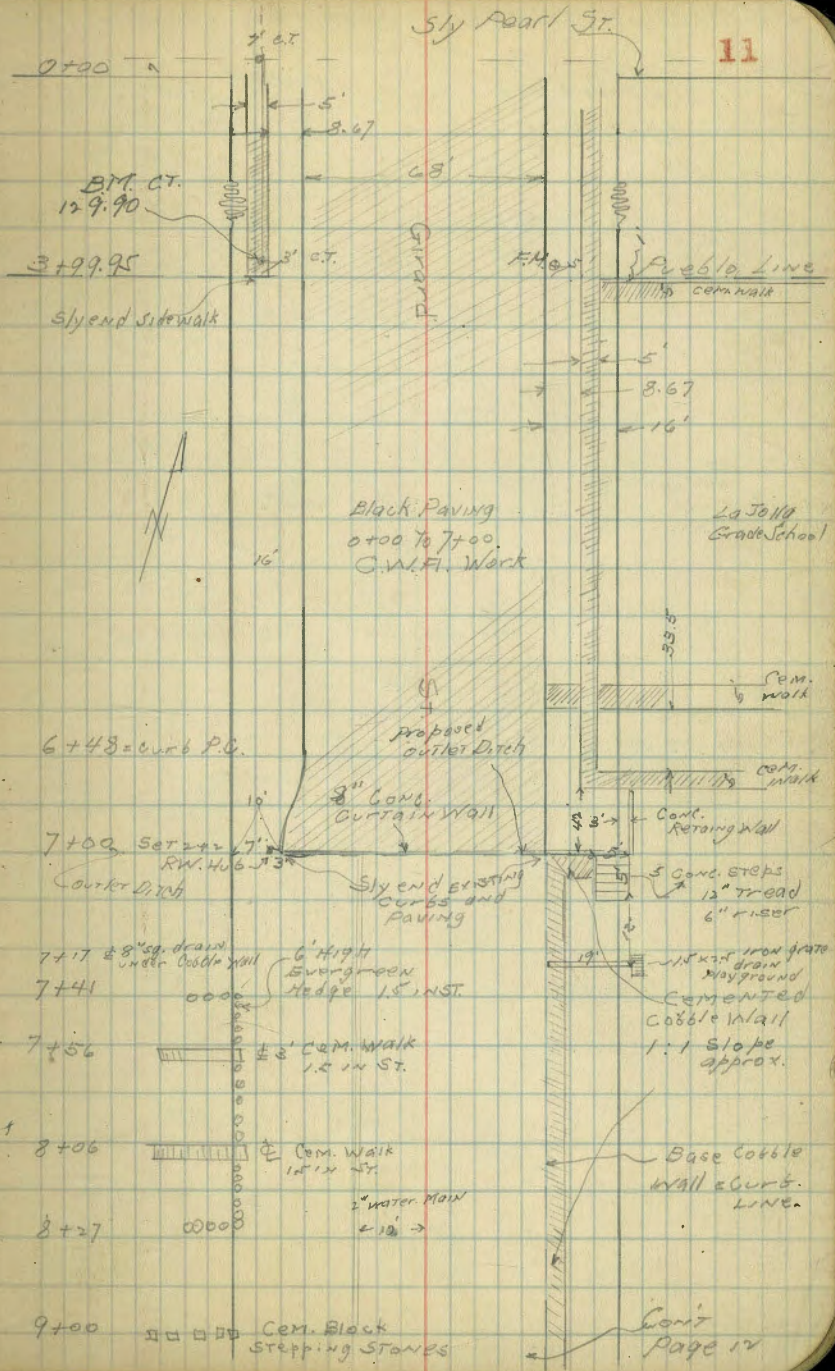 Sly Pearl St.
11
7' C.T.
0+00
5'
8.67
68'
B.M. CT.
129.90
Girard
3' C.T.
F.M.
5'
1'
Pueblo Line
3+99.95
Cem. walk
Sly end sidewalk
5'
8.67
16'
N
Black Paving
0+00 To 7+00
C.W.A. Work
La Jolla
Grade School
16'
33.5
St
Cem.
Walk
6+48 = Curb P.C.
Proposed
Outlet Ditch
Cem.
Walk
10'
8" Conc.
Curtain Wall
42
3'
Conc.
Retaing Wall
7+00 Set 2x2
R.W. Hub
7'
3'
Outlet Ditch
Sly end Existing
Curbs and
Paving
5'
5 Conc. Steps
12" Tread
6" riser
7+17 ₵ 8" sq. drain
under Cobble Wall
6' High
Evergreen
Hedge 1.5 in St.
19'
1.5 x 2.5 Iron grate
drain
Playground
7+41
Cemented
Cobble Wall
1:1 Slope
approx.
7+56
₵ 3' Cem. Walk
1.5 in St.
8+06
₵ Cem. Walk
1.5 in St.
Base Cobble
Wall = Curb.
Line.
2" Water Main
8+27
9+00
Cem. Block
Stepping Stones
Con't
Page 12